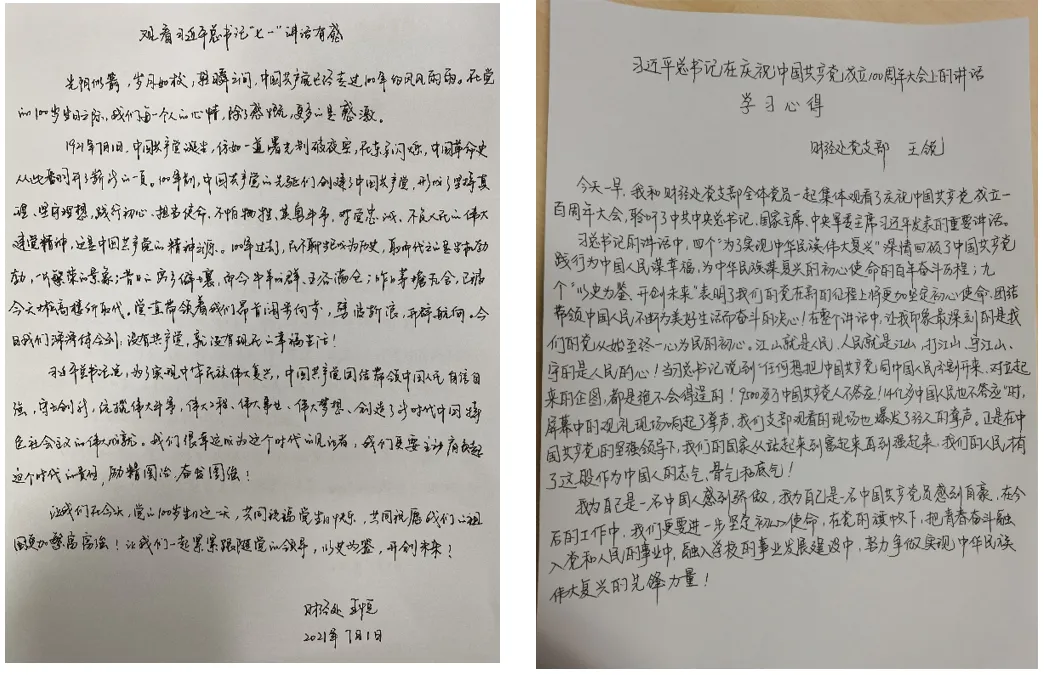 观看习近平总书记“七一”讲话有感
光阴似箭，岁月如梭，转瞬之间，中国共产党已经走过100年的风风雨雨。在党
的100岁生日之际，我们每一个人的心情，除了感慨，更多的是感激。
1921年7月1日，中国共产党诞生，仿如一道曙光划破夜空，在东方闪烁，中国革命史
从此翻开了新的一页。100年前，中国共产党的先驱们创建了中国共产党，形成了坚持真
理、坚守理想，践行初心、担当使命，不怕牺牲、英勇斗争，对党忠诚、不负人民的伟大
建党精神，这是中国共产党的精神之源。100年过去了，民不聊生已成为历史，取而代之的是生机勃
勃，一片繁荣的景象；昔日
而今牛羊成群、五谷满仓；昨日茅塘瓦舍，已被
今天的高楼所取代。党直带领着我们昂首阔步向前，劈波斩浪，开辟航向。今
日我们深深体会到：没有共产党，就没有现在的幸福生活！
习近平书记说，为了实现中华民族伟大复兴，中国共产党团结带领中国人民自信自
强、守正创新，统揽伟大斗争、伟大工程、伟大事业、伟大梦想，创造了新时代中国特
色社会主义的伟大成就。我们很幸运成为这个时代的见证者，我们更要主动肩负起
这个时代的责任，励精图治，奋发图强！
让我们在今天，党的100岁生日这一天，共同祝福党生日快乐，共同祝愿我们的祖
国更加繁荣富强！让我们一起紧紧跟随党的领导，以史为鉴，开创未来！
财经处 王恒
2021年7月1日
习近平总书记在庆祝中国共产党成立100周年大会上的讲话
学习心得
财经处党支部 王锐
今天一早，我和财经处党支部全体党员一起集体观看了庆祝中国共产党成立一
百周年大会，聆听了中共中央总书记、国家主席、中央军委主席习近平发表的重要讲话。
习总书记的讲话中，四个“为了实现中华民族伟大复兴”深情回顾了中国共产党
践行为中国人民谋幸福，为中华民族谋复兴的初心使命的百年奋斗历程；九
个“以史为鉴、开创未来”表明了我们的党在新的征程上将更加坚定初心使命，团结
带领中国人民不断为美好生活而奋斗的决心！在整个讲话中，让我印象最深刻的是我
们的党从始至终一心为民的初心。江山就是人民，人民就是江山，打江山、守江山，
守的是人民的心！当习总书记说到“任何想把中国共产党同中国人民分割开来、对立起
来的企图，都是绝不会得逞的！9500多万中国共产党人不答应！14亿多中国人民也不答应”时，
屏幕中的观礼现场响起了掌声，我们支部观看的现场也爆发了惊人的掌声。正是在中
国共产党的坚强领导下，我们的国家从站起来到富起来再到强起来，我们的人民才有
了这股作为中国人的志气、骨气和底气！
我为自己是一名中国人感到骄傲，我为自己是一名中国共产党员感到自豪，在今
后的工作中，我们更要进一步坚定初心使命，在党的旗帜下，把青春奋斗融
入党和人民的事业中，融入学校的事业发展建设中，努力争做实现中华民族
伟大复兴的先锋力量！